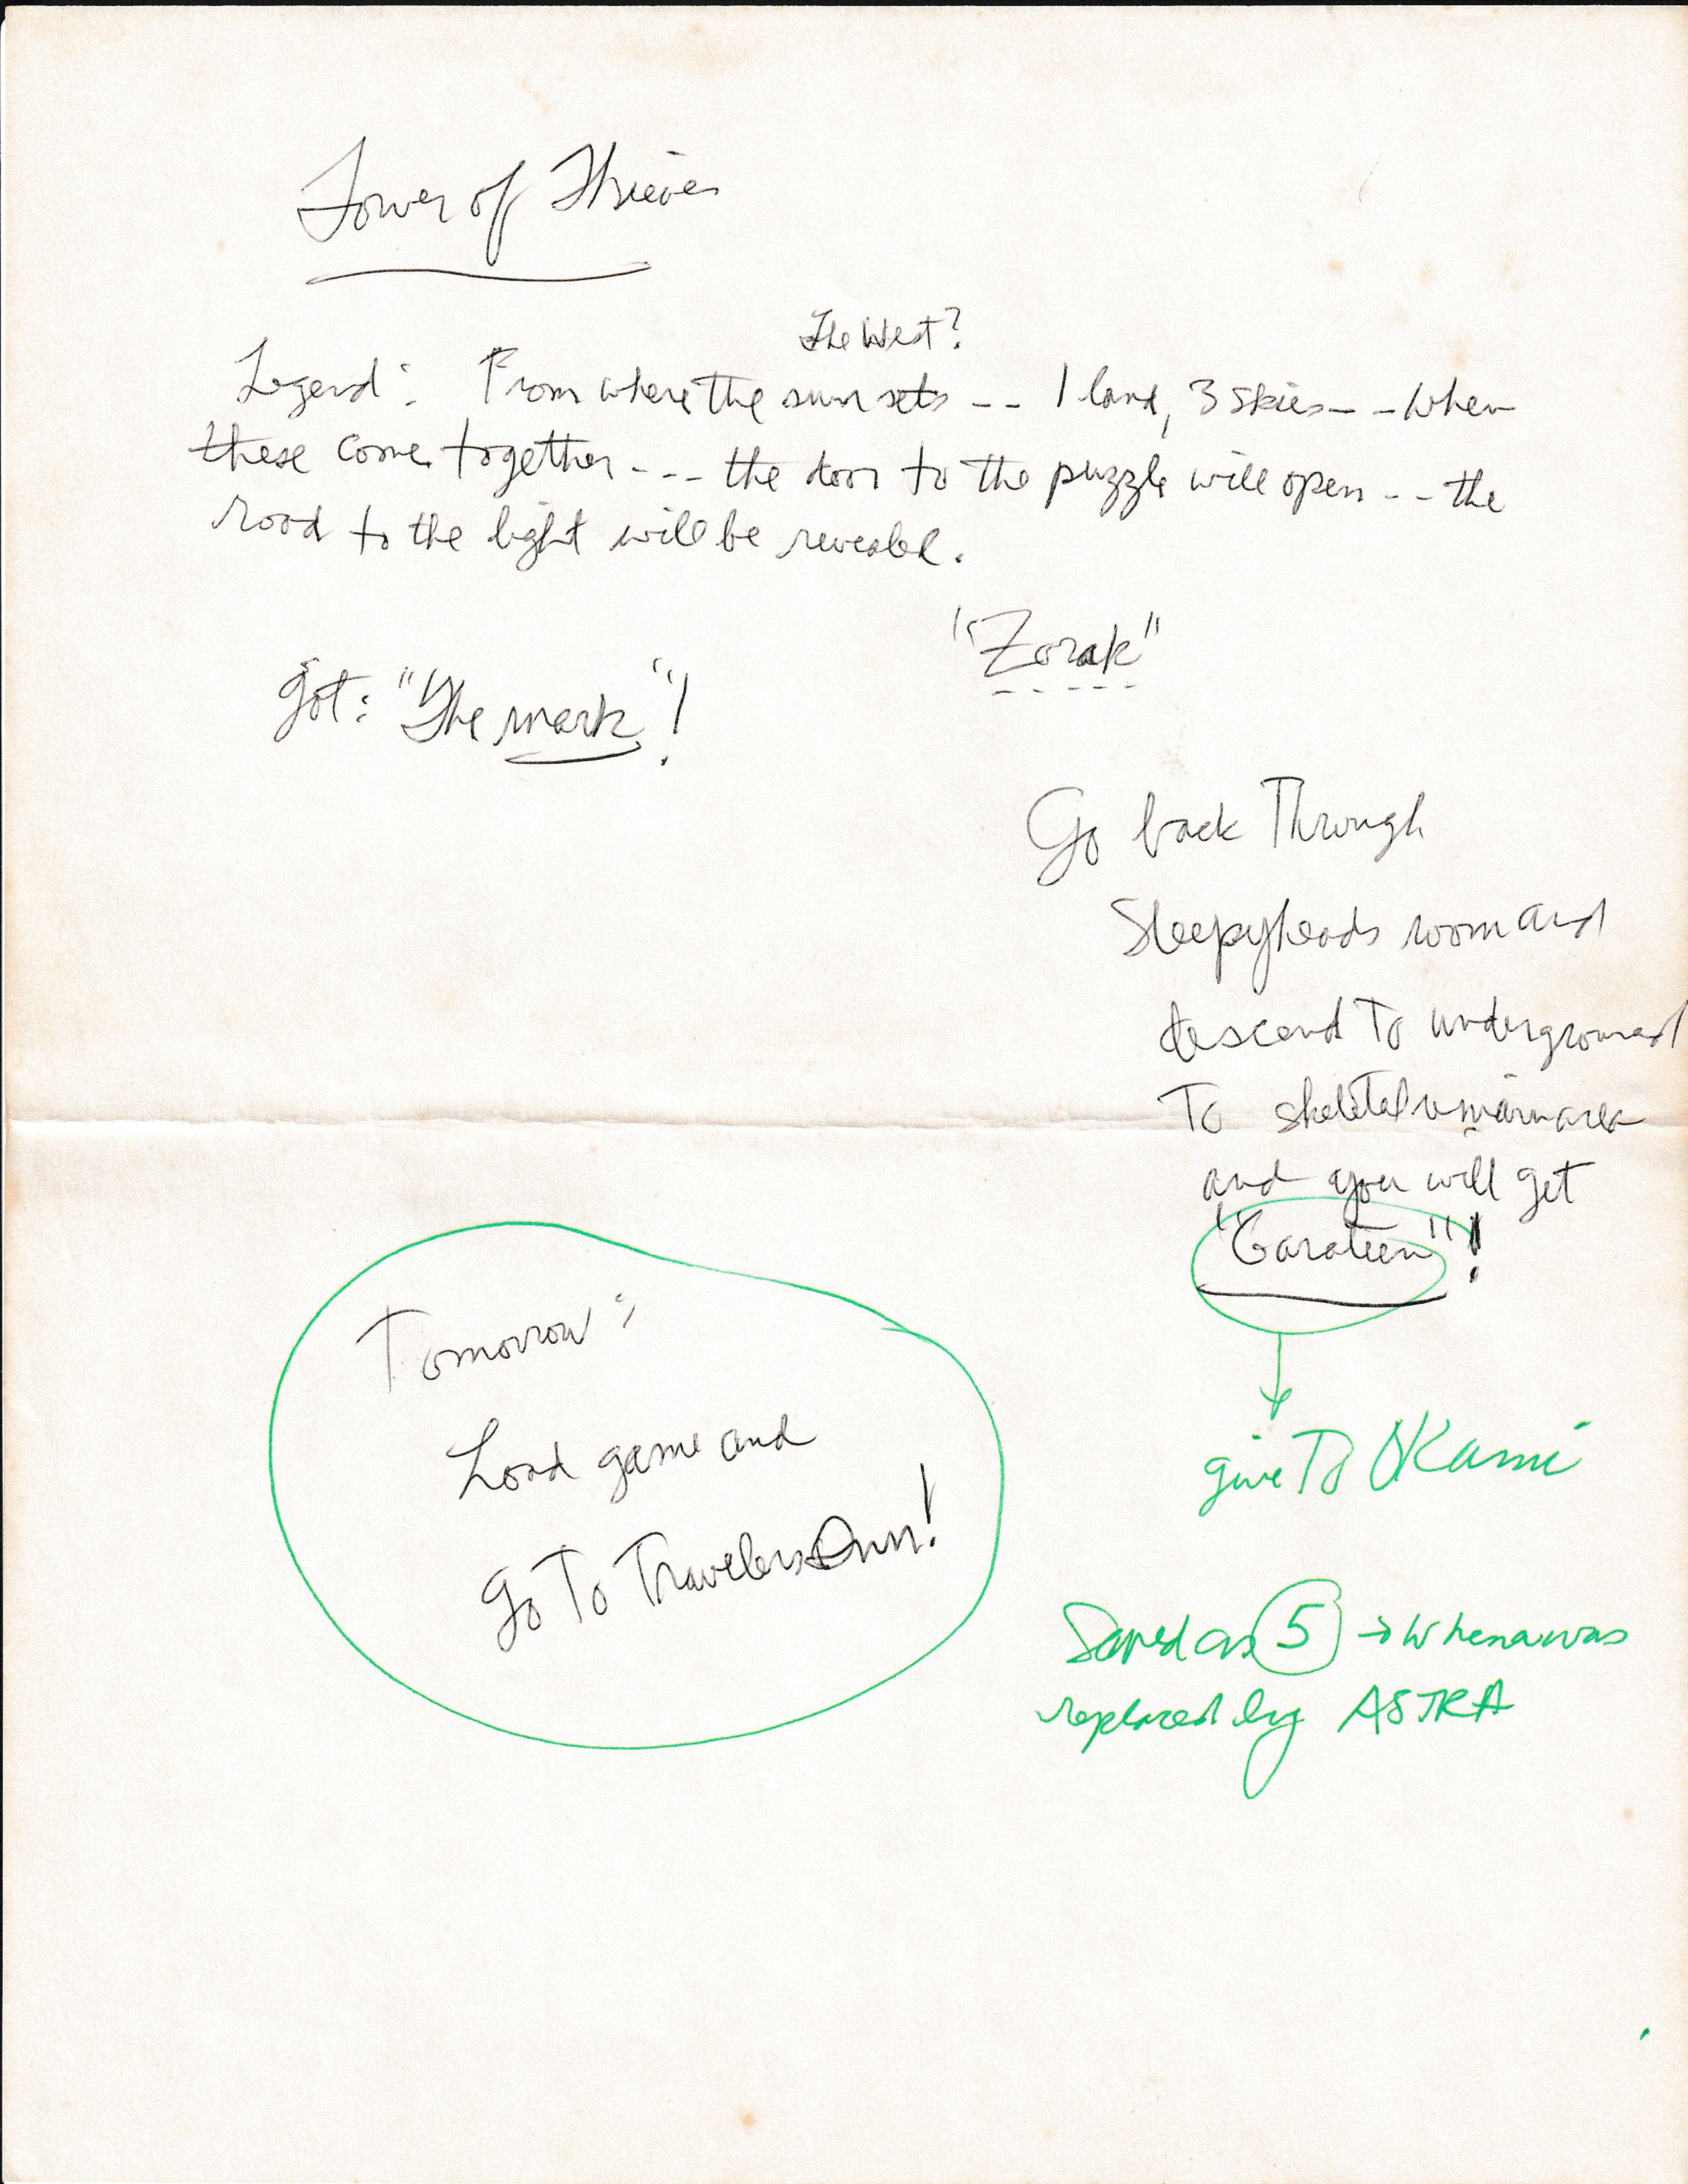 Tower of Thieves
The West?
Legend: From where the sun sets -- 1 land, 3 skies -- when
these come together --- the door to the puzzle will open -- the
road to the light will be revealed.
"Zorak"
got: "The mark"!
Go back Through
Sleepyheads room and
descend To underground
To skeletal remain area
and you will get
"Garateen"!
Tomorrow:
Load game and
go To Travelers Inn!
give To OKami
Saved as 5 → When a was
replaced by ASTRA